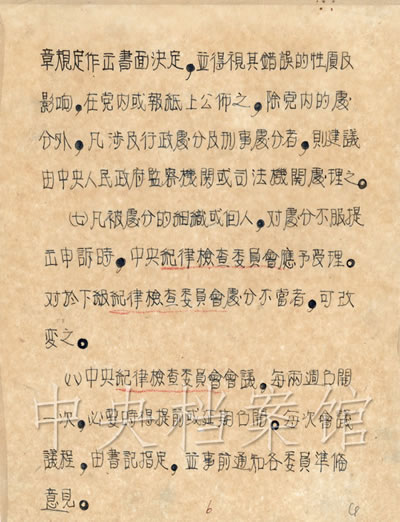 章規定作出書面決定,並得視其錯誤的性质及
影响,在党内或報紙上公佈之,除党内的處
分外,凡涉及行政處分及刑事處分者,則建議
由中央人民政府監察機関或司法機関處理之。
(七)凡被處分的組織或個人,对處分不服提
出申訴時,中央紀律檢查委員會應予受理。
对於下級紀律檢查委員會處分不當者,可改
變之。
(八)中央紀律檢查委員會會議,每兩週召開
一次,必要時得提前或延期召開。每次會議
議程,由書記指定,並事前通知各委員準備
意見。
中央档案馆
6